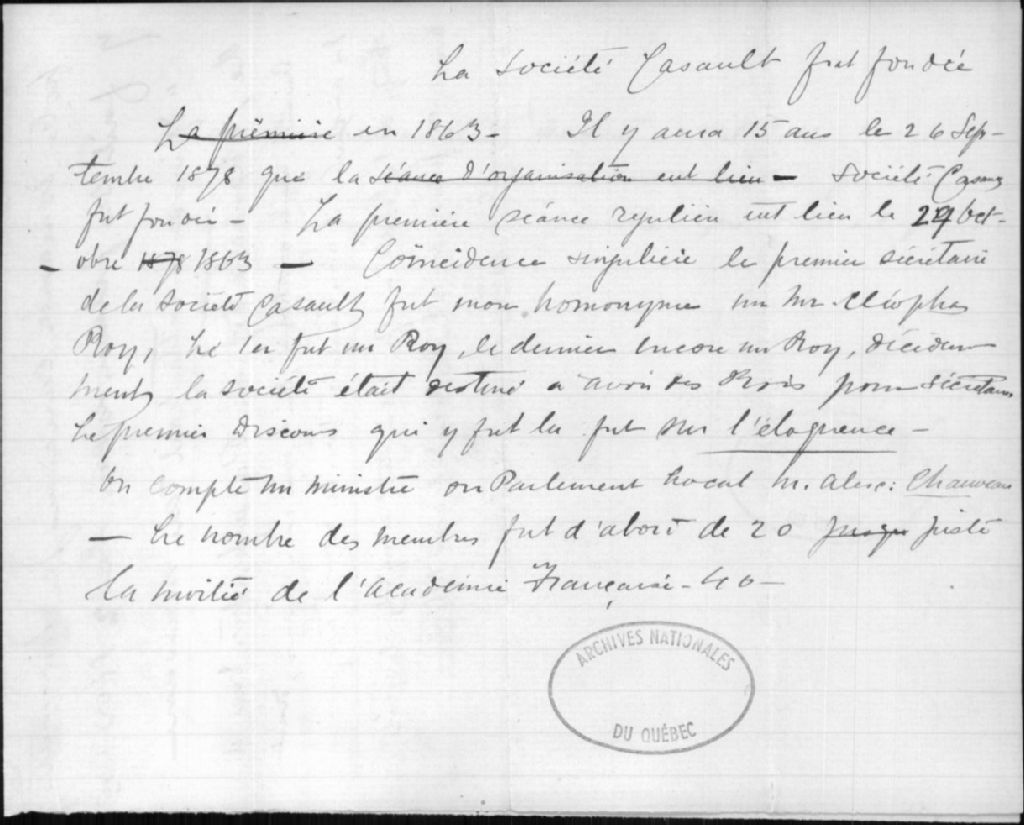 La Société Casault fut fondée
La première en 1863. Il y aura 15 ans le 26 Sep-
tembre 1878 que la séance d'organisation eut lieu — Société Casau
fut fondée — La première séance regulière eut lieu le 29 Oct-
— obre 1878 1863 — Coïncidence singulière le premier sécrétaire
de la Société Casault fut mon homonyme un Mr Cléophas
Roy, Le 1er fut un Roy, le dernier encore un Roy, décidem
ment la société était destiné a avoir des Rois pour sécrétaires
Le premier discours qui y fut lu fut sur l'éloquence —
On compte un ministre au Parlement Local M. Alex: Chauveau
— Le nombre des membres fut d'abord de 20 jusqu juste
la moitié de l'Académie Française — 40 —
ARCHIVES NATIONALES
DU QUÉBEC